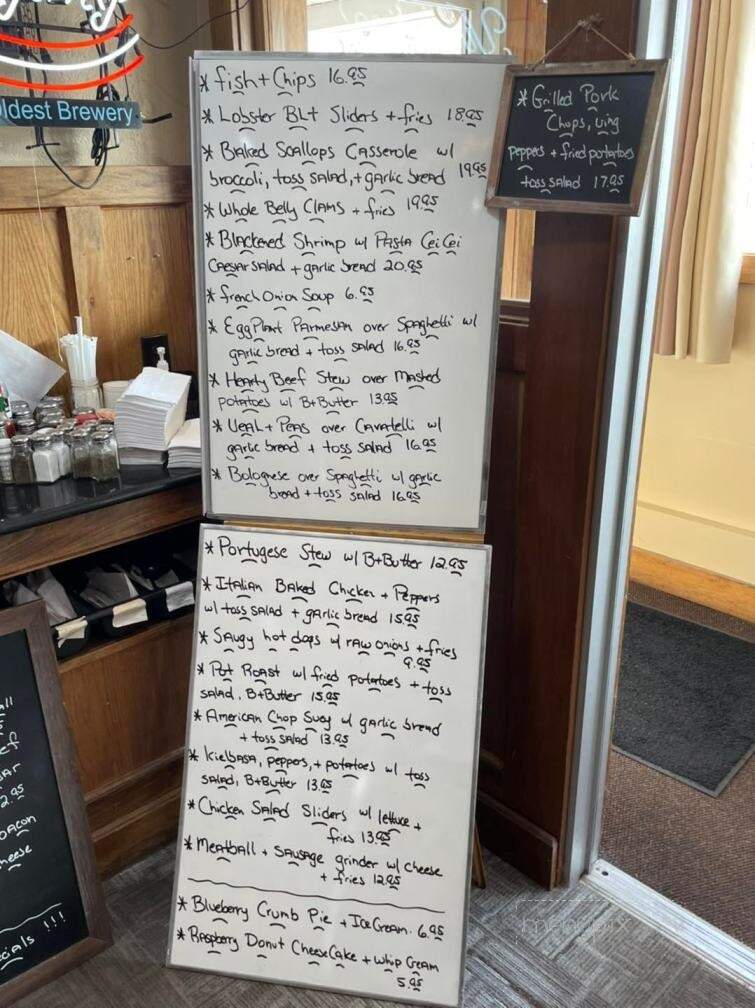 oldest Brewery
* fish + Chips 16.95
* Lobster BLT Sliders + fries 18.95
* Baked Scallops Casserole w/
broccoli, toss salad, + garlic bread 19.95
* Whole Belly Clams + fries 19.95
* Blackened Shrimp w/ Pasta CeiCei
Caesar salad + garlic bread 20.95
* french Onion Soup 6.95
* EggPlant Parmesan over Spaghetti w/
garlic bread + toss salad 16.95
* Hearty Beef Stew over Mashed
potatoes w/ B+Butter 13.95
* Veal + Peas over Cavatelli w/
garlic bread + toss salad 16.95
* Bolognese over Spaghetti w/ garlic
bread + toss salad 16.95
* Grilled Pork
Chops, ving
peppers + fried potatoes
toss salad 17.95
* Portugese Stew w/ B+Butter 12.95
* Italian Baked Chicken + Peppers
w/ toss salad + garlic bread 15.95
* Saugy hot dogs w/ raw onions + fries
9.95
* Pot Roast w/ fried potatoes + toss
salad, B+Butter 15.95
* American Chop Suey w/ garlic bread
+ toss salad 13.95
* kielbasa, peppers, + potatoes w/ toss
salad, B+Butter 13.95
* Chicken Salad Sliders w/ lettuce +
fries 13.95
* Meatball + Sausage grinder w/ cheese
+ fries 12.95
* Blueberry Crumb Pie + Ice Cream. 6.95
* Raspberry Donut CheeseCake + whip Cream
5.95
2.95
bacon
heese
cials !!!